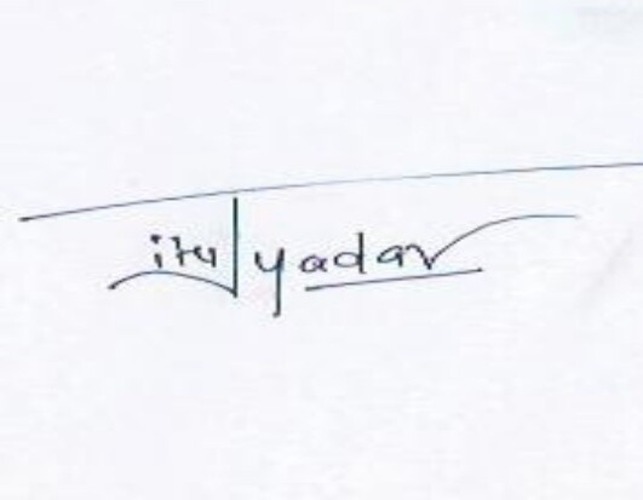 Jitu yadav